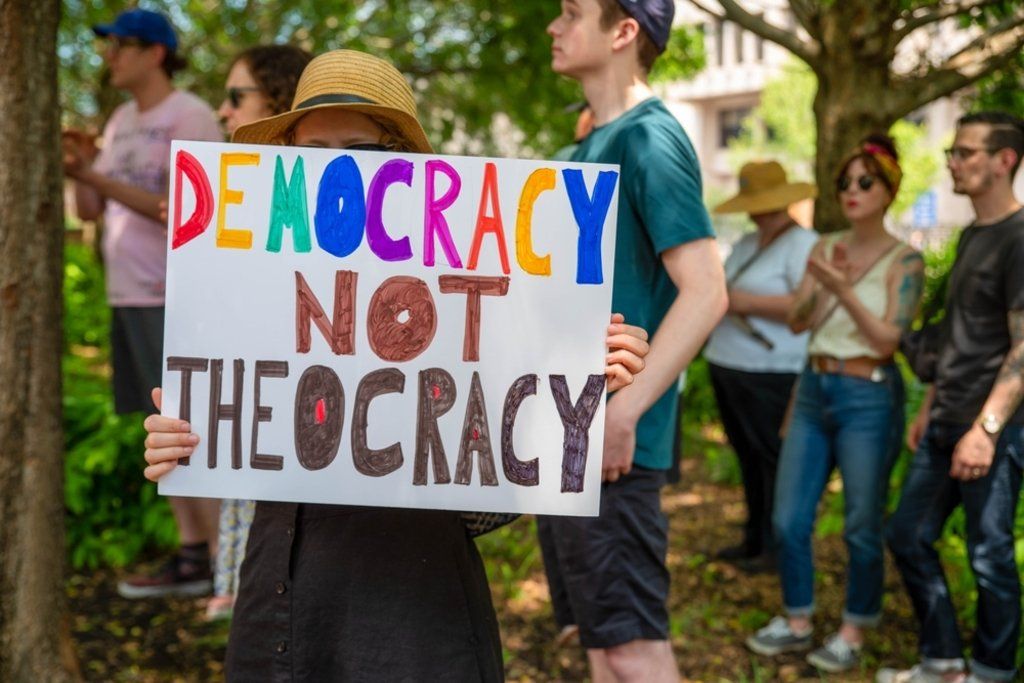 DEMOCRACY
NOT
THEOCRACY